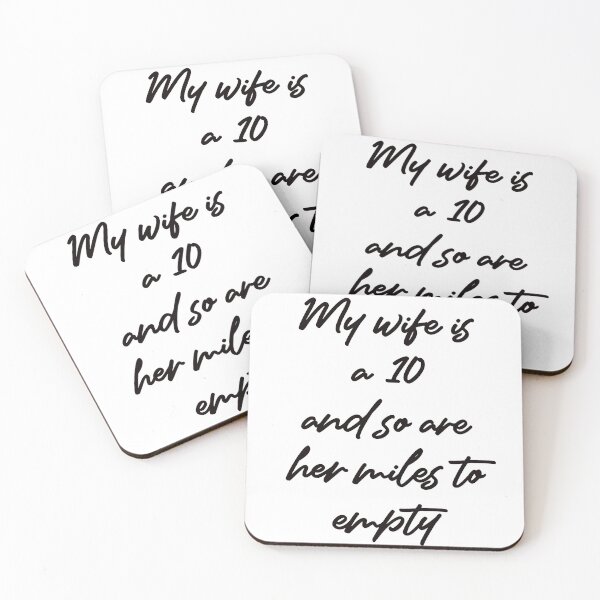 My wife is
a 10
are
My wife is
a 10
and so are
her miles to
My wife is
a 10
and so are
her
My wife is
a 10
and so are
her miles to
empty